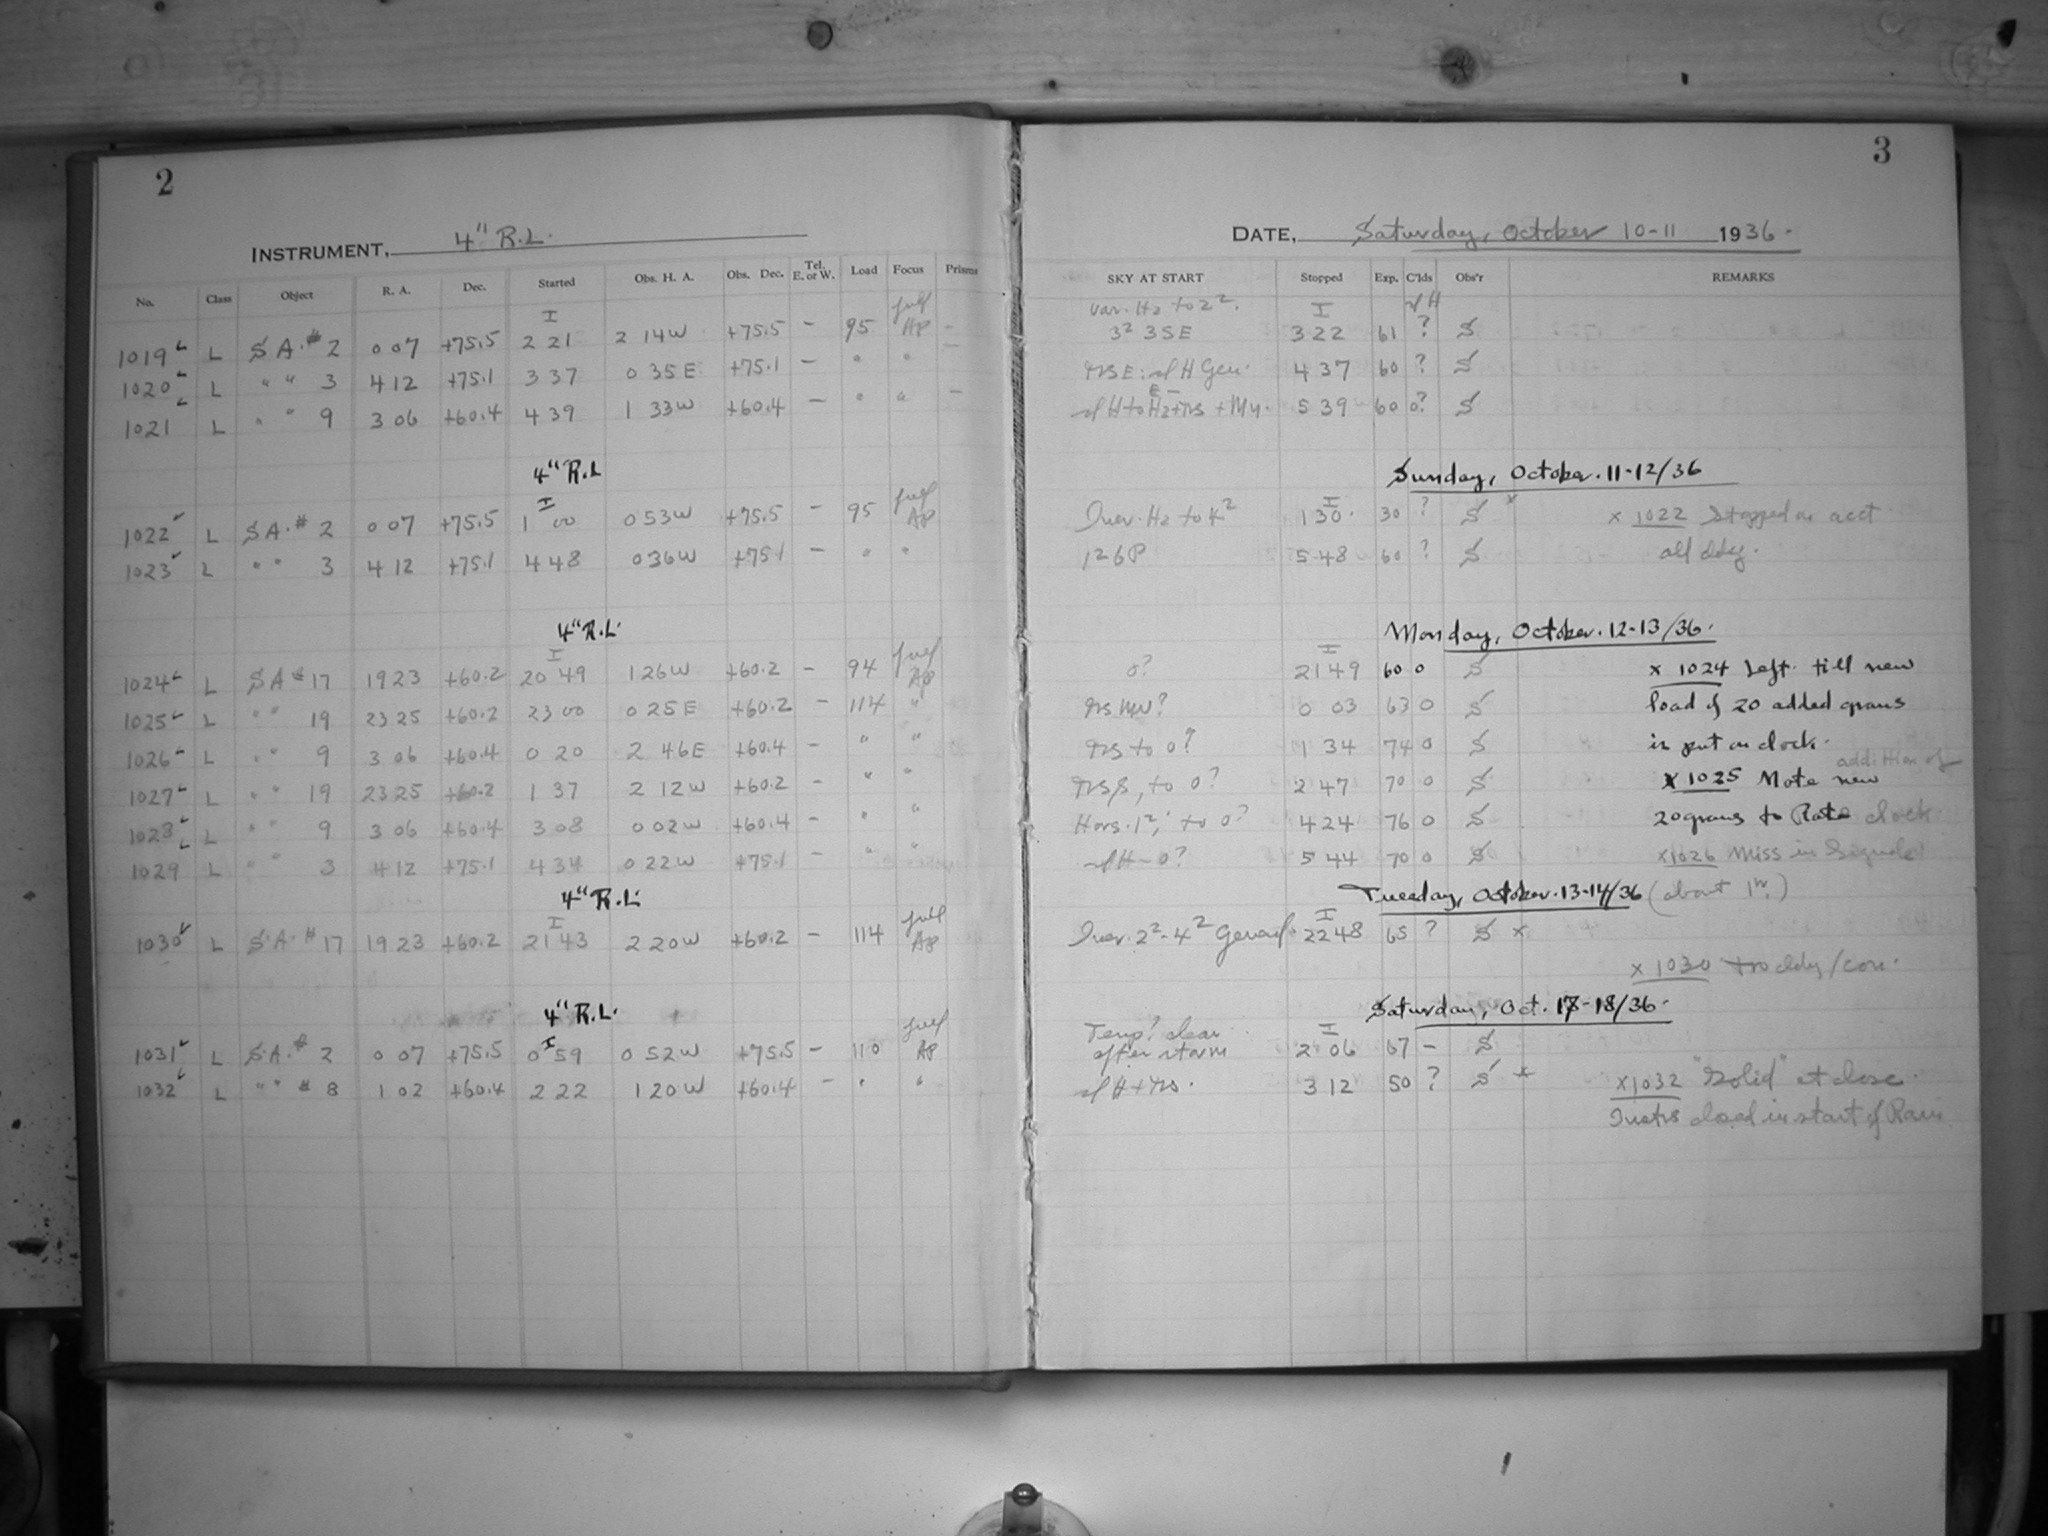 2
INSTRUMENT, 4" R.L.
No. Class Object R. A. Dec. Started Obs. H. A. Obs. Dec. Tel. E. or W. Load Focus Prisms
1019 L S A. # 2 0 07 +75.5 2 21 2 14 W +75.5 - 95 -
1020 L " " 3 4 12 +75.1 3 37 0 35 E +75.1 - " "
1021 L " " 9 3 06 +60.4 4 39 1 33 W +60.4 - " " -
4" R.L
1022 L S A. # 2 0 07 +75.5 1 00 0 53 W +75.5 - 95
1023 L " " 3 4 12 +75.1 4 48 0 36 W +75.1 - " "
4" R.L.
1024 L S A # 17 19 23 +60.2 20 49 1 26 W +60.2 - 94
1025 L " " 19 23 25 +60.2 23 00 0 25 E +60.2 - 114 "
1026 L " " 9 3 06 +60.4 0 20 2 46 E +60.4 - " "
1027 L " " 19 23 25 +60.2 1 37 2 12 W +60.2 - " "
1028 L " " 9 3 06 +60.4 3 08 0 02 W +60.4 - " "
1029 L " " 3 4 12 +75.1 4 34 0 22 W +75.1 - " "
4" R.L.
1030 L S.A. # 17 19 23 +60.2 21 43 2 20 W +60.2 - 114
4" R.L.
1031 L S.A. # 2 0 07 +75.5 0 59 0 52 W +75.5 - 110
1032 L " " # 8 1 02 +60.4 2 22 1 20 W +60.4 - " "
3
DATE, Saturday, October 10-11 1936.
SKY AT START Stopped Exp. C'lds Obs'r REMARKS
var. Hz to 2²,
3² 3SE 3 22 61 ? S
4 37 60 ? S
5 39 60 0? S
Sunday, October. 11-12/36
Hz to 1 30. 30 ? S x x 1022 Stopped on acct
126P 5 48 60 ? S all
Monday, October. 12-13/36.
0? 21 49 60 0 S x 1024 Left till new
NW? 0 03 63 0 S load of 20 added grams
to 0? 1 34 74 0 S is put on clock.
addition of
to 0? 2 47 70 0 S x 1025 Note new
to 0? 4 24 76 0 S 20 grams to Rate clock.
5 44 70 0 S x 1026 Miss in
Tuesday, October. 13-14/36 (about 1m.)
22 48 65 ? S x
x 1030
Saturday, Oct. 17-18/36.
Temp? clear
after storm 2 06 67 - S
3 12 50 ? S x x 1032 "Solid" at close.
closed in start of Rain